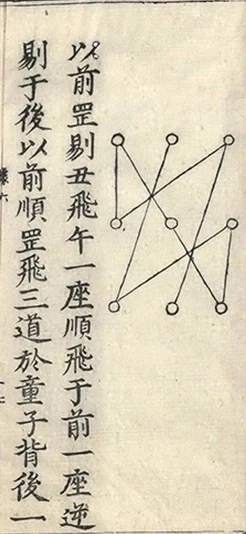 以前罡剔丑飛午一座順飛于前一座逆
剔于後以前順罡飛三道於童子背後一